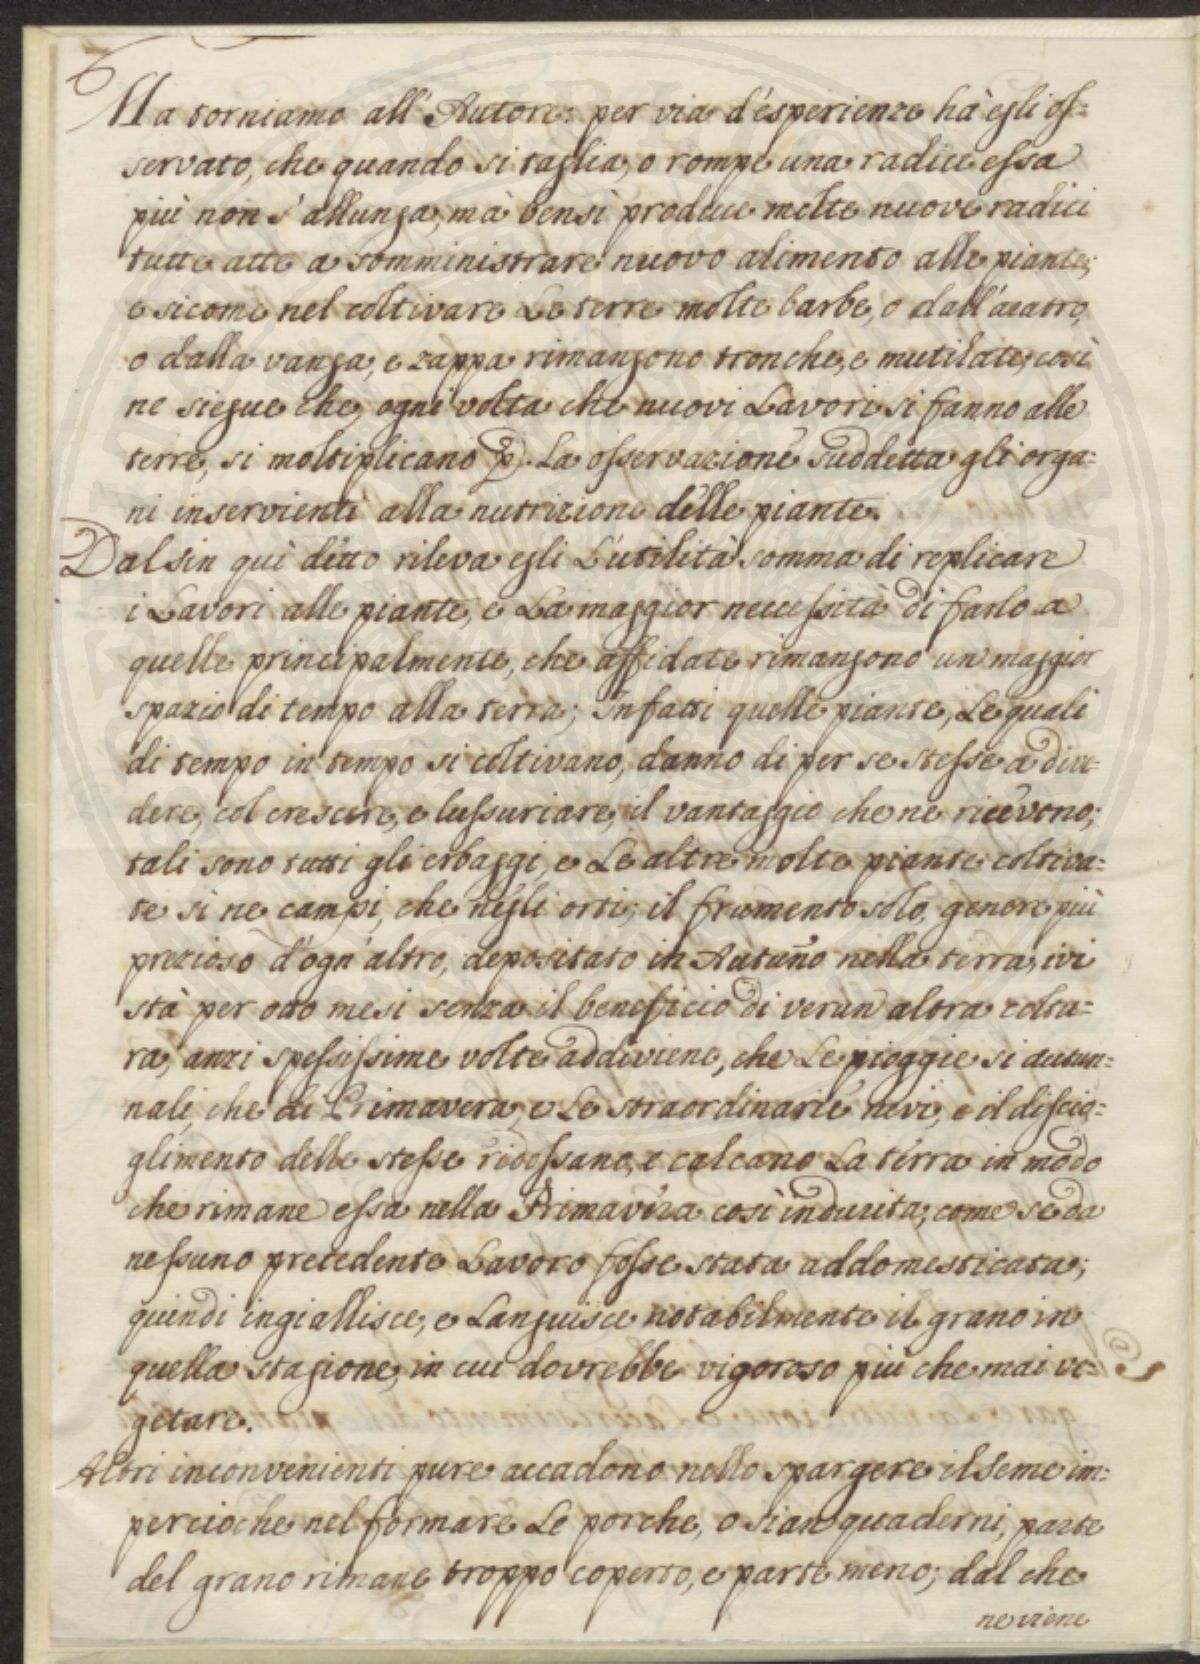 6
Ma torniamo all'Autore: per via d'esperienze hà egli os=
servato, che quando si taglia, o rompe una radice essa
più non s'allunga, mà bensì produce molte nuove radici
tutte atte a somministrare nuovo alimento alle piante;
e sicome nel coltivare Le terre molte barbe, o dall'aratro,
o dalla vanga, e zappa rimangono tronche, e mutilate, così
ne siegue che, ogni volta che nuovi Lavori si fanno alle
terre, si moltiplicano p. La osservazione suddetta gli orga=
ni inservienti alla nutrizione delle piante.
Dal sin quì detto rileva egli L'utilità somma di replicare
i Lavori alle piante, e La maggior necessità di farlo a
quelle principalmente, che affidate rimangono un maggior
spazio di tempo alla terra; Infatti quelle piante, Le quali
di tempo in tempo si coltivano, danno di per se stesse a dive=
dere, col crescere, e lussuriare, il vantaggio che ne ricevono;
tali sono tutti gli erbaggi, e Le altre molte piante coltiva=
te sì ne campi, che negli orti; il frumento solo, genere più
prezioso d'ogn'altro, depositato in Autuño nella terra, ivi
stà per otto mesi senza il beneficio di verun'altra coltu=
ra, anzi spessissime volte addiviene, che Le pioggie sì autun=
nali, che di Primavera, e Le straordinarie nevi, e il discio=
glimento delle stesse ridossano, e calcano La terra in modo
che rimane essa nella Primavera così indurita, come se da
nessuno precedente Lavoro fosse stata addomesticata;
quindi ingiallisce, e Languisce notabilmente il grano in
quella stagione, in cui dovrebbe vigoroso più che mai ve=
getare.
Altri inconvenienti pure accadono nello spargere il seme im=
percioche nel formare Le porche, o sian quaderni, parte
del grano rimane troppo coperto, e parte meno; dal che
ne viene